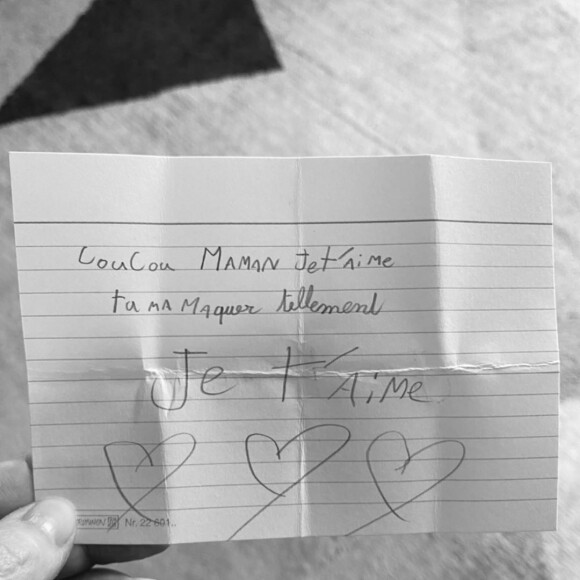 CouCou MAMAN Je t'Aime
tu mA MAquer tellement
Je t'Aime
Nr. 22 601..